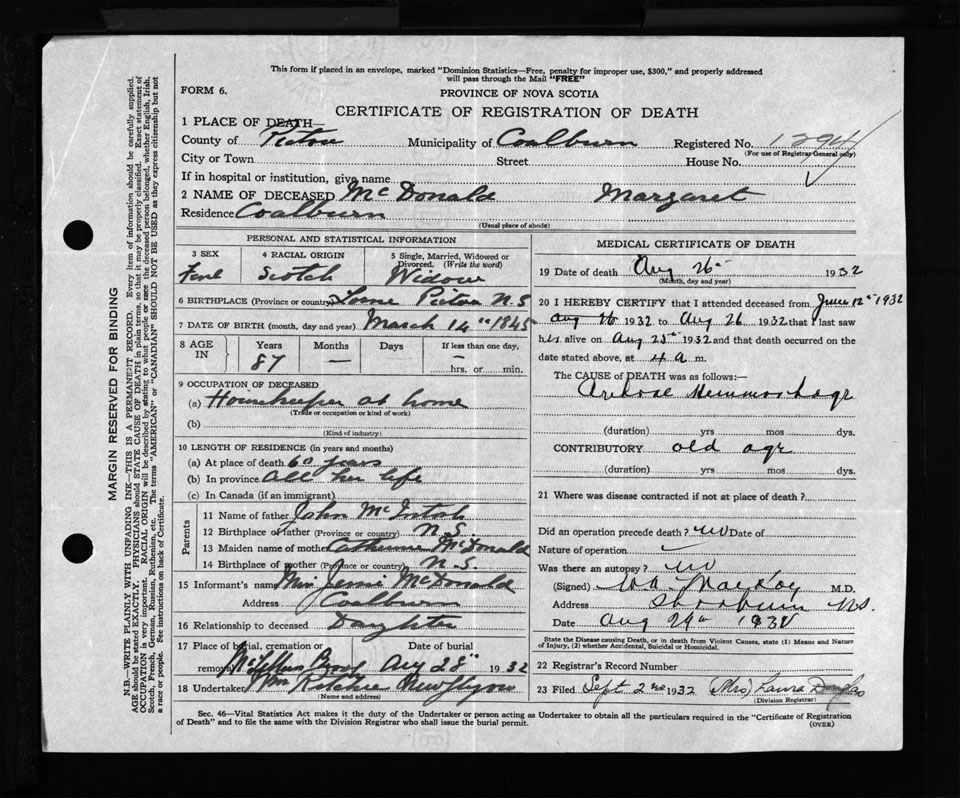 This form if placed in an envelope, marked "Dominion Statistics—Free, penalty for improper use, $300," and properly addressed
will pass through the Mail "FREE"
FORM 6.
PROVINCE OF NOVA SCOTIA
CERTIFICATE OF REGISTRATION OF DEATH
1 PLACE OF DEATH—
County of Pictou Municipality of Coalburn Registered No. 1294
(For use of Registrar General only)
City or Town Street House No.
If in hospital or institution, give name
2 NAME OF DECEASED McDonald Margaret
Residence Coalburn
(Usual place of abode)
PERSONAL AND STATISTICAL INFORMATION
3 SEX 4 RACIAL ORIGIN 5 Single, Married, Widowed or Divorced. (Write the word)
Scotch Widow
6 BIRTHPLACE (Province or country) Lorne Pictou N.S
7 DATE OF BIRTH (month, day and year) March 14th 1845
8 AGE IN Years Months Days If less than one day,
87 — — hrs. or min.
9 OCCUPATION OF DECEASED
(a) Housekeeper at home
(Trade or occupation or kind of work)
(b)
(Kind of industry)
10 LENGTH OF RESIDENCE (in years and months)
(a) At place of death 60 years
(b) In province all her life
(c) In Canada (if an immigrant)
Parents
11 Name of father John McIntosh
12 Birthplace of father (Province or country) N.S.
13 Maiden name of mother Catherine McDonald
14 Birthplace of mother (Province or country) N.S.
15 Informant's name Jessie McDonald
Address Coalburn
16 Relationship to deceased Daughter
17 Place of burial, cremation or removal Date of burial
Aug 28th 1932
18 Undertaker Wm Ritchie New Glasgow
(Name and address)
MEDICAL CERTIFICATE OF DEATH
19 Date of death Aug 26th 1932
(Month, day and year)
20 I HEREBY CERTIFY that I attended deceased from June 12th 1932
Aug 26 1932 to Aug 26 1932 that I last saw
her alive on Aug 25th 1932 and that death occurred on the
date stated above, at 4 a m.
The CAUSE of DEATH was as follows:—
Hemmorhage
(duration) yrs mos dys.
CONTRIBUTORY old age
(duration) yrs mos dys.
21 Where was disease contracted if not at place of death?
Did an operation precede death? no Date of
Nature of operation
Was there an autopsy? no
(Signed) M.D.
Address N.S.
Date Aug 29th 1932
State the Disease causing Death, or in death from Violent Causes, state (1) Means and Nature
of Injury, (2) whether Accidental, Suicidal or Homicidal.
22 Registrar's Record Number
23 Filed Sept 2nd 1932 (Mrs) Laura Douglas
(Division Registrar)
Sec. 46—Vital Statistics Act makes it the duty of the Undertaker or person acting as Undertaker to obtain all the particulars required in the "Certificate of Registration
of Death" and to file the same with the Division Registrar who shall issue the burial permit.
(OVER)
MARGIN RESERVED FOR BINDING
N.B.—WRITE PLAINLY WITH UNFADING INK—THIS IS A PERMANENT RECORD. Every item of information should be carefully supplied.
AGE should be stated EXACTLY. PHYSICIANS should STATE CAUSE OF DEATH in plain terms, so that it may be properly classified. Exact statement of
OCCUPATION is very important. RACIAL ORIGIN will be described by stating to what people or race the deceased person belonged, whether English, Irish,
Scotch, French, German, Russian, Ruthenian, etc. The terms "AMERICAN" or "CANADIAN" SHOULD NOT BE USED as they express citizenship but not
a race or people. See instructions on back of Certificate.